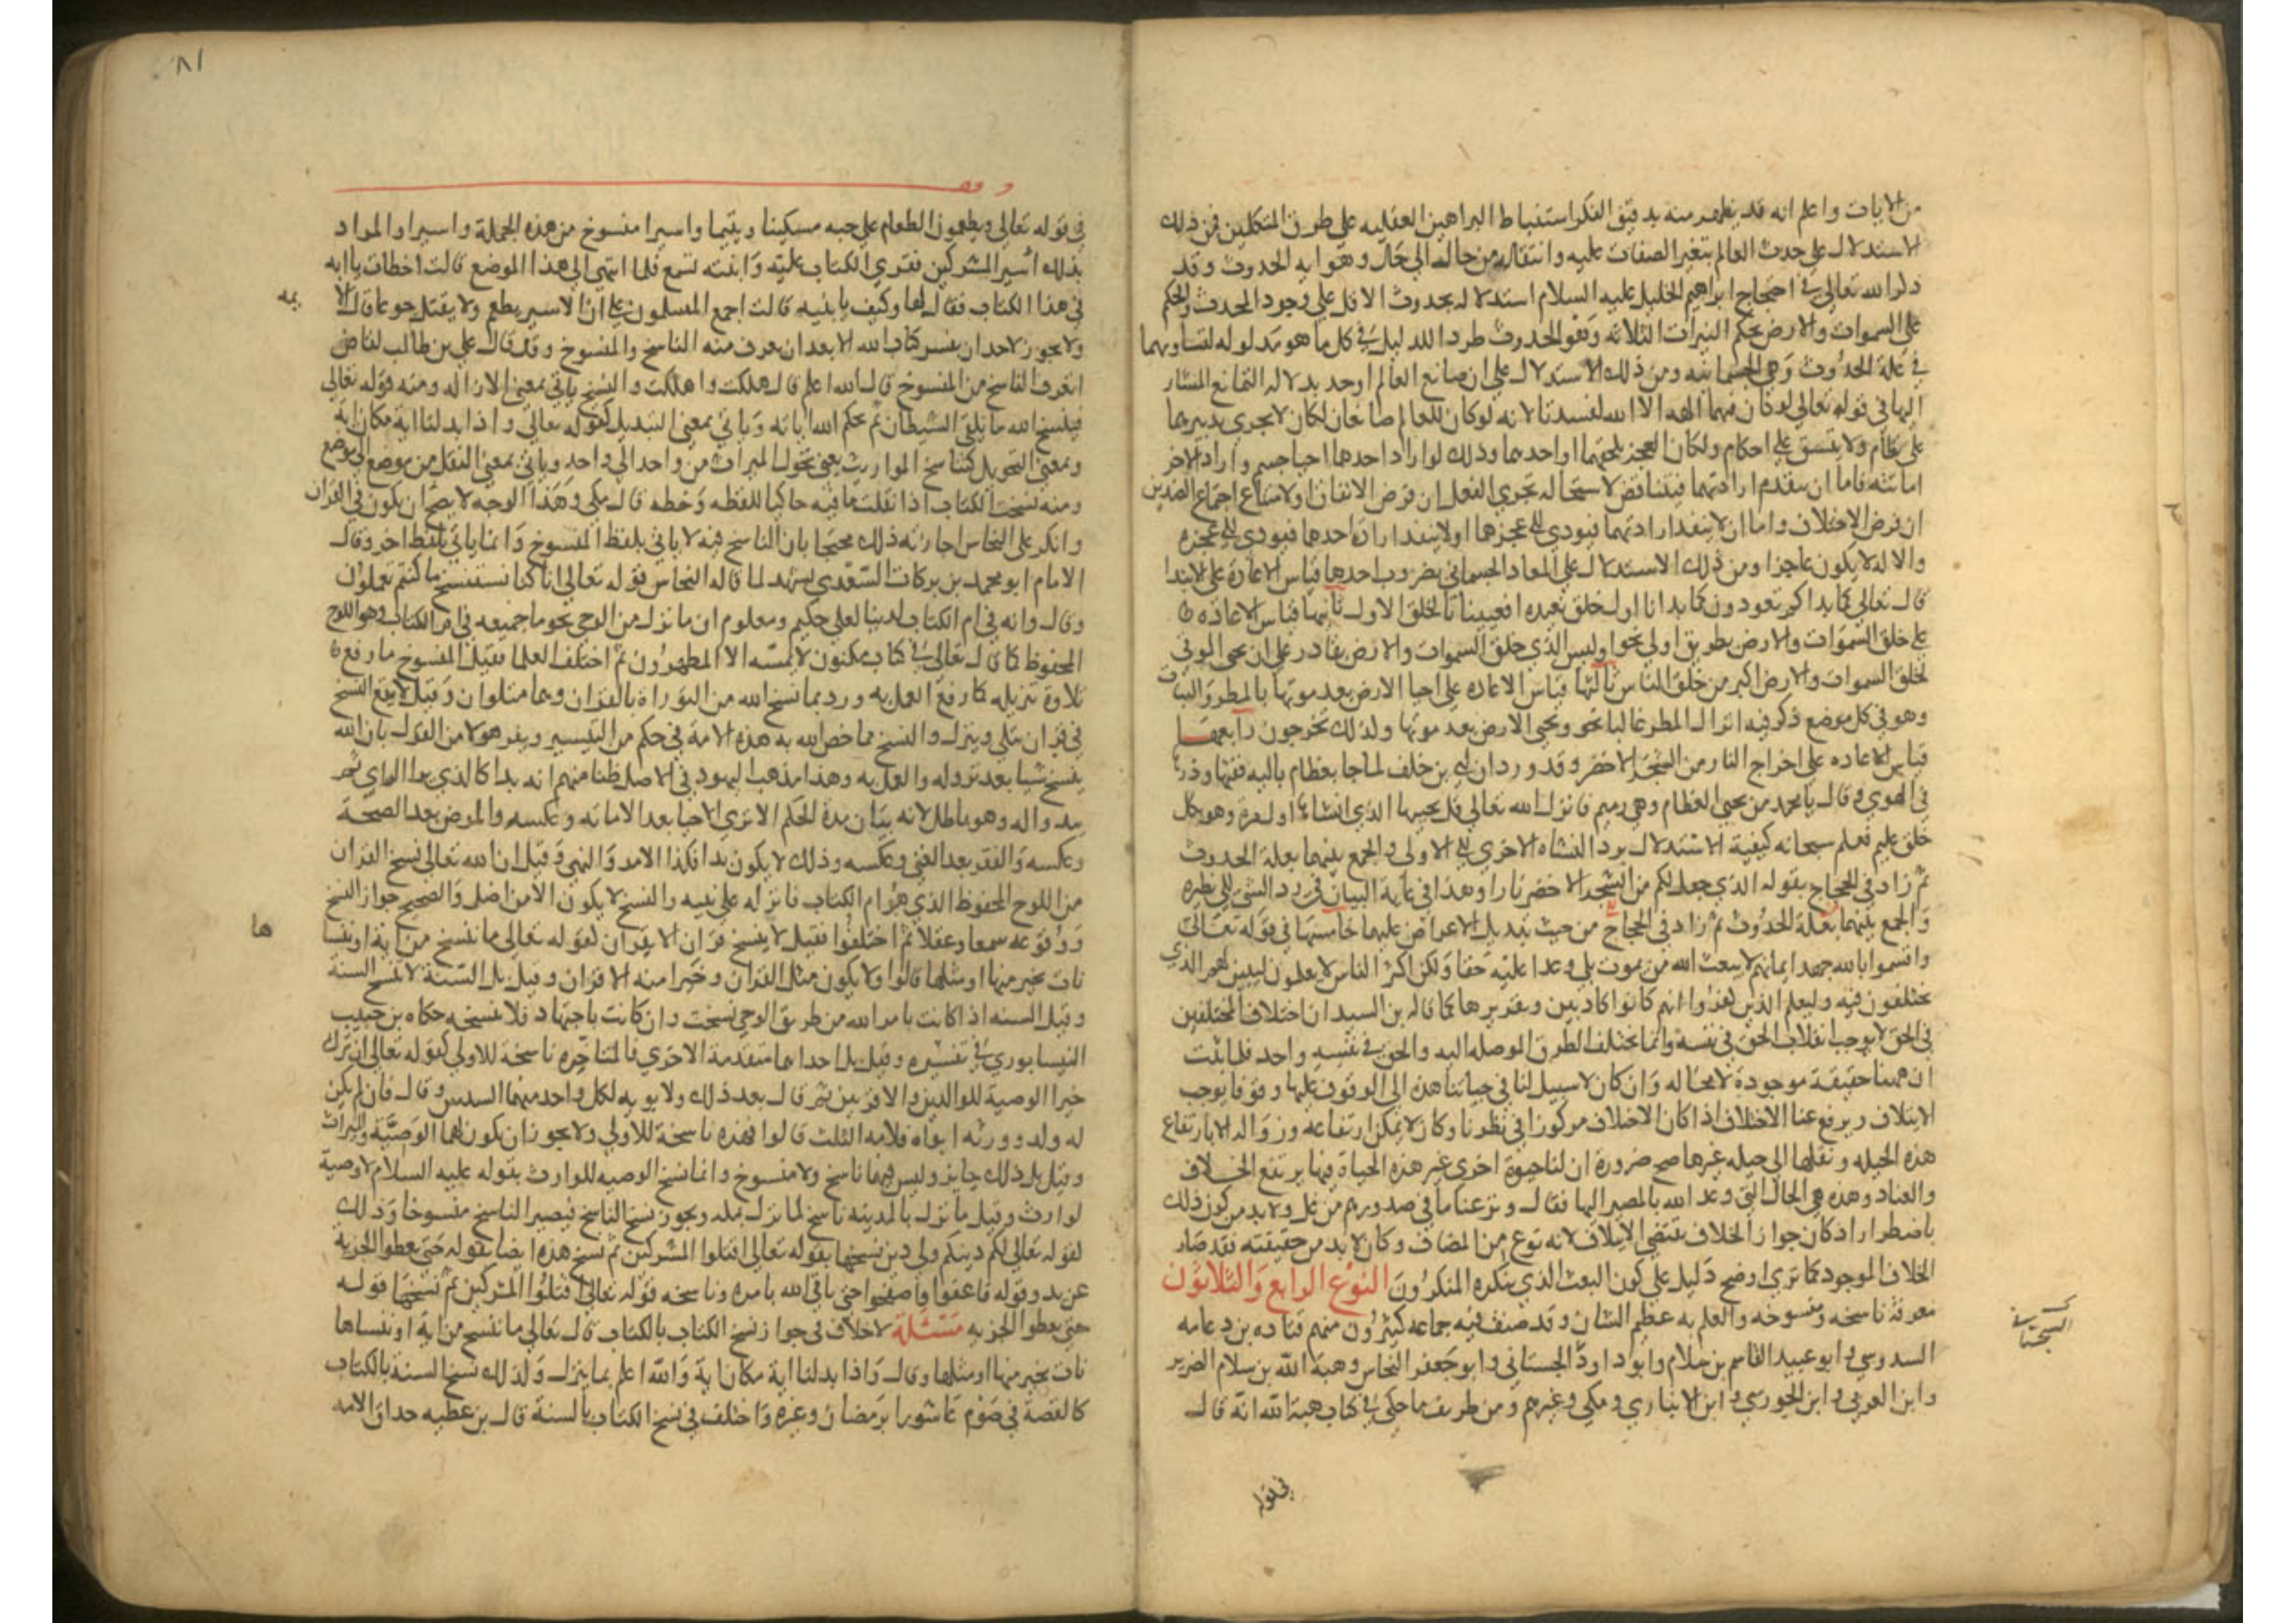 من الايات واعلم انه قد يظهر منه بدقيق الفكر استنباط البراهين العقليه علي طرق المتكلمين فمن ذلك
الاستدلال على حدث العالم بتغير الصفات عليه وانتقاله من حال الى حال وهو اية الحدوث وقد
ذكر الله تعالى في احتجاج ابراهيم الخليل عليه السلام استدلاله بحدوث الافل على وجود المحدث والحكم
على السموات والارض بحكم النيرات الثلاثه وهو الحدوث طرد الدليل في كل ما هو مدلوله لتساويهما
في علة الحدوث وهي الجسمانيه ومن ذلك الاستدلال علي ان صانع العالم واحد بدلاله التمانع المشار
اليها في قوله تعالى لو كان فيهما الهه الا الله لفسدتا لانه لو كان للعالم صانعان لكان لا يجري تدبيرهما
على نظام ولا يتسق على احكام ولكان العجز يلحقهما او احدهما وذلك لو اراد احدهما احيا جسم واراد الاخر
اماتته فاما ان تنفذ ارادتهما فيتناقض لاستحاله تجزي الفعل ان فرض الاتفاق او لامتناع اجتماع الضدين
ان فرض الاختلاف واما ان لا تنفذ ارادتهما فيودي الى عجزهما او لا تنفذ ارادة احدهما فيودي الى عجزه
والاله لا يكون عاجزا ومن ذلك الاستدلال على المعاد الجسماني بضروب احدها قياس الاعادة على الابتدا
قال تعالى كما بداكم تعودون كما بدانا اول خلق نعيده افعيينا بالخلق الاول ثانيها قياس الاعاده
على خلق السموات والارض بطريق اولى نحو اوليس الذي خلق السموات والارض بقادر على ان يحيى الموتى
لخلق السموات والارض اكبر من خلق الناس ثالثها قياس الاعاده على احيا الارض بعد موتها بالمطر والنبات
وهو في كل موضع ذكر فيه انزال المطر غالبا نحو ويحيى الارض بعد موتها وكذلك تخرجون رابعها
قياس الاعاده على اخراج النار من الشجر الاخضر وقد ورد ان ابي بن خلف لما جا بعظام باليه ففتها وذرها
في الهوي وقال يا محمد من يحيى العظام وهي رميم فانزل الله تعالى قل يحييها الذي انشاها اول مرة وهو بكل
خلق عليم فعلم سبحانه كيفية الاستدلال برد النشاه الاخرى الى الاولى والجمع بينهما بعلة الحدوث
ثم زاد في الحجاج بقوله الذي جعل لكم من الشجر الاخضر نارا وهذا في غاية البيان في رد الشي الى نظيره
والجمع بينهما بعلة الحدوث ثم زاد في الحجاج من حيث تبديل الاعراض عليهما خامسها في قوله تعالى
واقسموا بالله جهد ايمانهم لا يبعث الله من يموت بلى وعدا عليه حقا ولكن اكثر الناس لا يعلمون ليبين لهم الذي
يختلفون فيه وليعلم الذين كفروا انهم كانوا كاذبين وتقريرها كما قاله بن السيد ان اختلاف المختلفين
في الحق لا يوجب انقلاب الحق في نفسه وانما تختلف الطرق الموصله اليه والحق في نفسه واحد فلما ثبت
ان ههنا حقيقة موجودة لا محاله وان كان لا سبيل لنا في حياتنا هذه الى الوقوف عليها وقوفا يوجب
الايتلاف ويرفع عنا الاختلاف اذ كان الاختلاف مركوزا في فطرنا وكان لا يمكن ارتفاعه وزواله الا بارتفاع
هذه الجبله ونقلها الى جبله غيرها صح ضرورة ان لنا حيوة اخرى غير هذه الحياة فيها يرتفع الخلاف
والعناد وهذه هي الحال التي وعد الله بالمصير اليها فقال ونزعنا ما في صدورهم من غل ولا بد من كون ذلك
باضطرار اذ كان جواز الخلاف يقتضي الايتلاف لانه نوع من المضاف وكان لا بد من حقيقته فقد صار
الخلاف الموجود كما ترى اوضح دليل على كون البعث الذي ينكره المنكرون النوع الرابع والثلاثون
معرفة ناسخه ومنسوخه والعلم به عظيم الشان وقد صنف فيه جماعه كثيرون منهم قتاده بن دعامه
السدوسي وابو عبيد القاسم بن سلام وابو داود السجستاني وابو جعفر النحاس وهبة الله بن سلام الضرير
وابن العربي وابن الجوزي وابن الانباري ومكي وغيرهم ومن طريف ما حكى في كتاب هبة الله انه قال
السجستاني
في قوله
٨١
في قوله تعالى ويطعمون الطعام على حبه مسكينا ويتيما واسيرا منسوخ من هذه الجملة واسيرا والمراد
بذلك اسير المشركين فقري الكتاب عليه وابنته تسمع فلما انتهى الى هذا الموضع قالت اخطات يا ابه
في هذا الكتاب فقال لها وكيف يا بنيه قالت اجمع المسلمون على ان الاسير يطعم ولا يقتل جوعا قال الا
ولا يجوز لاحد ان يفسر كتاب الله الا بعد ان يعرف منه الناسخ والمنسوخ وقد قال علي بن طالب لقاض
اتعرف الناسخ من المنسوخ قال الله اعلم قال هلكت واهلكت والنسخ ياتي بمعنى الازاله ومنه قوله تعالى
فينسخ الله ما يلقى الشيطان ثم يحكم الله اياته وياتي بمعنى التبديل كقوله تعالى واذا بدلنا اية مكان اية
وبمعنى التحويل كتناسخ المواريث يعنى تحول الميراث من واحد الى واحد وياتي بمعنى النقل من موضع الى موضع
ومنه نسخت الكتاب اذا نقلت ما فيه حاكيا للفظه وخطه قال مكي وهذا الوجه لا يصح ان يكون في القران
وانكر على النحاس اجازته ذلك محتجا بان الناسخ فيه لا ياتي بلفظ المنسوخ وانما ياتي بلفظ اخر وقال
الامام ابو محمد بن بركات السعدي يشهد لما قاله النحاس قوله تعالى انا كنا نستنسخ ما كنتم تعملون
وقال وانه في ام الكتاب لدينا لعلى حكيم ومعلوم ان ما نزل من الوحي نجوما جميعه في ام الكتاب وهو اللوح
المحفوظ كما قال تعالى في كتاب مكنون لا يمسه الا المطهرون ثم اختلف العلما فقيل المنسوخ ما رفع
تلاوة تنزيله كما رفع العمل به ورد بما نسخ الله من التوراة بالقران وهما متلوان وقيل لا يقع النسخ
في قران يتلى وينزل والنسخ مما خص الله به هذه الامة في حكم من التيسير ويفر هولا من القول بان الله
ينسخ شيا بعد نزوله والعمل به وهذا مذهب اليهود في الاصل ظنا منهم انه بدا كالذي يرا الراي ثم
يبدو اله وهو باطل لانه بيان مدة الحكم الا ترى الاحيا بعد الاماته وعكسه والمرض بعد الصحة
وعكسه والفقر بعد الغنى وعكسه وذلك لا يكون بدا فكذا الامر والنهي وقيل ان الله تعالى نسخ القران
من اللوح المحفوظ الذي هو ام الكتاب فانزله على نبيه والنسخ لا يكون الا من اصل والصحيح جواز النسخ
ووقوعه سمعا وعقلا ثم اختلفوا فقيل لا ينسخ قران الا بقران لقوله تعالى ما ننسخ من اية او ننسا
ها
نات بخير منها او مثلها قالوا ولا يكون مثل القران وخيرا منه الا قران وقيل بل السنة لا تنسخ السنة
وقيل السنه اذا كانت بامر الله من طريق الوحي نسخت وان كانت باجتهاد فلا تنسخه حكاه بن حبيب
النيسابوري في تفسيره وقيل بل احداهما متقدمة الاخرى فالمتاخره ناسخة للاولى كقوله تعالى ان ترك
خيرا الوصية للوالدين والاقربين ثم قال بعد ذلك ولابويه لكل واحد منهما السدس وقال فان لم يكن
له ولد وورثه ابواه فلامه الثلث قالوا فهذه ناسخة للاولى ولا يجوز ان يكون لهما الوصية والميراث
وقيل بل ذلك جايز وليس فيهما ناسخ ولا منسوخ وانما نسخ الوصيه للوارث بقوله عليه السلام لا وصية
لوارث وقيل ما نزل بالمدينه ناسخ لما نزل بمكه ويجوز نسخ الناسخ فيصير الناسخ منسوخا وذلك
لقوله تعالى لكم دينكم ولي دين نسخها بقوله تعالى اقتلوا المشركين ثم نسخ هذه ايضا بقوله حتى يعطوا الجزية
عن يد وقوله فاعفوا واصفحوا حتى ياتي الله بامره وناسخه قوله تعالى اقتلوا المشركين ثم نسخها قوله
حتى يعطوا الجزيه مسئلة لا خلاف في جواز نسخ الكتاب بالكتاب قال تعالى ما ننسخ من اية او ننساها
نات بخير منها او مثلها وقال واذا بدلنا اية مكان اية والله اعلم بما ينزل وكذلك نسخ السنة بالكتاب
كالقصة في صوم عاشورا برمضان وغيره واختلف في نسخ الكتاب بالسنة قال بن عطيه حذاق الامه